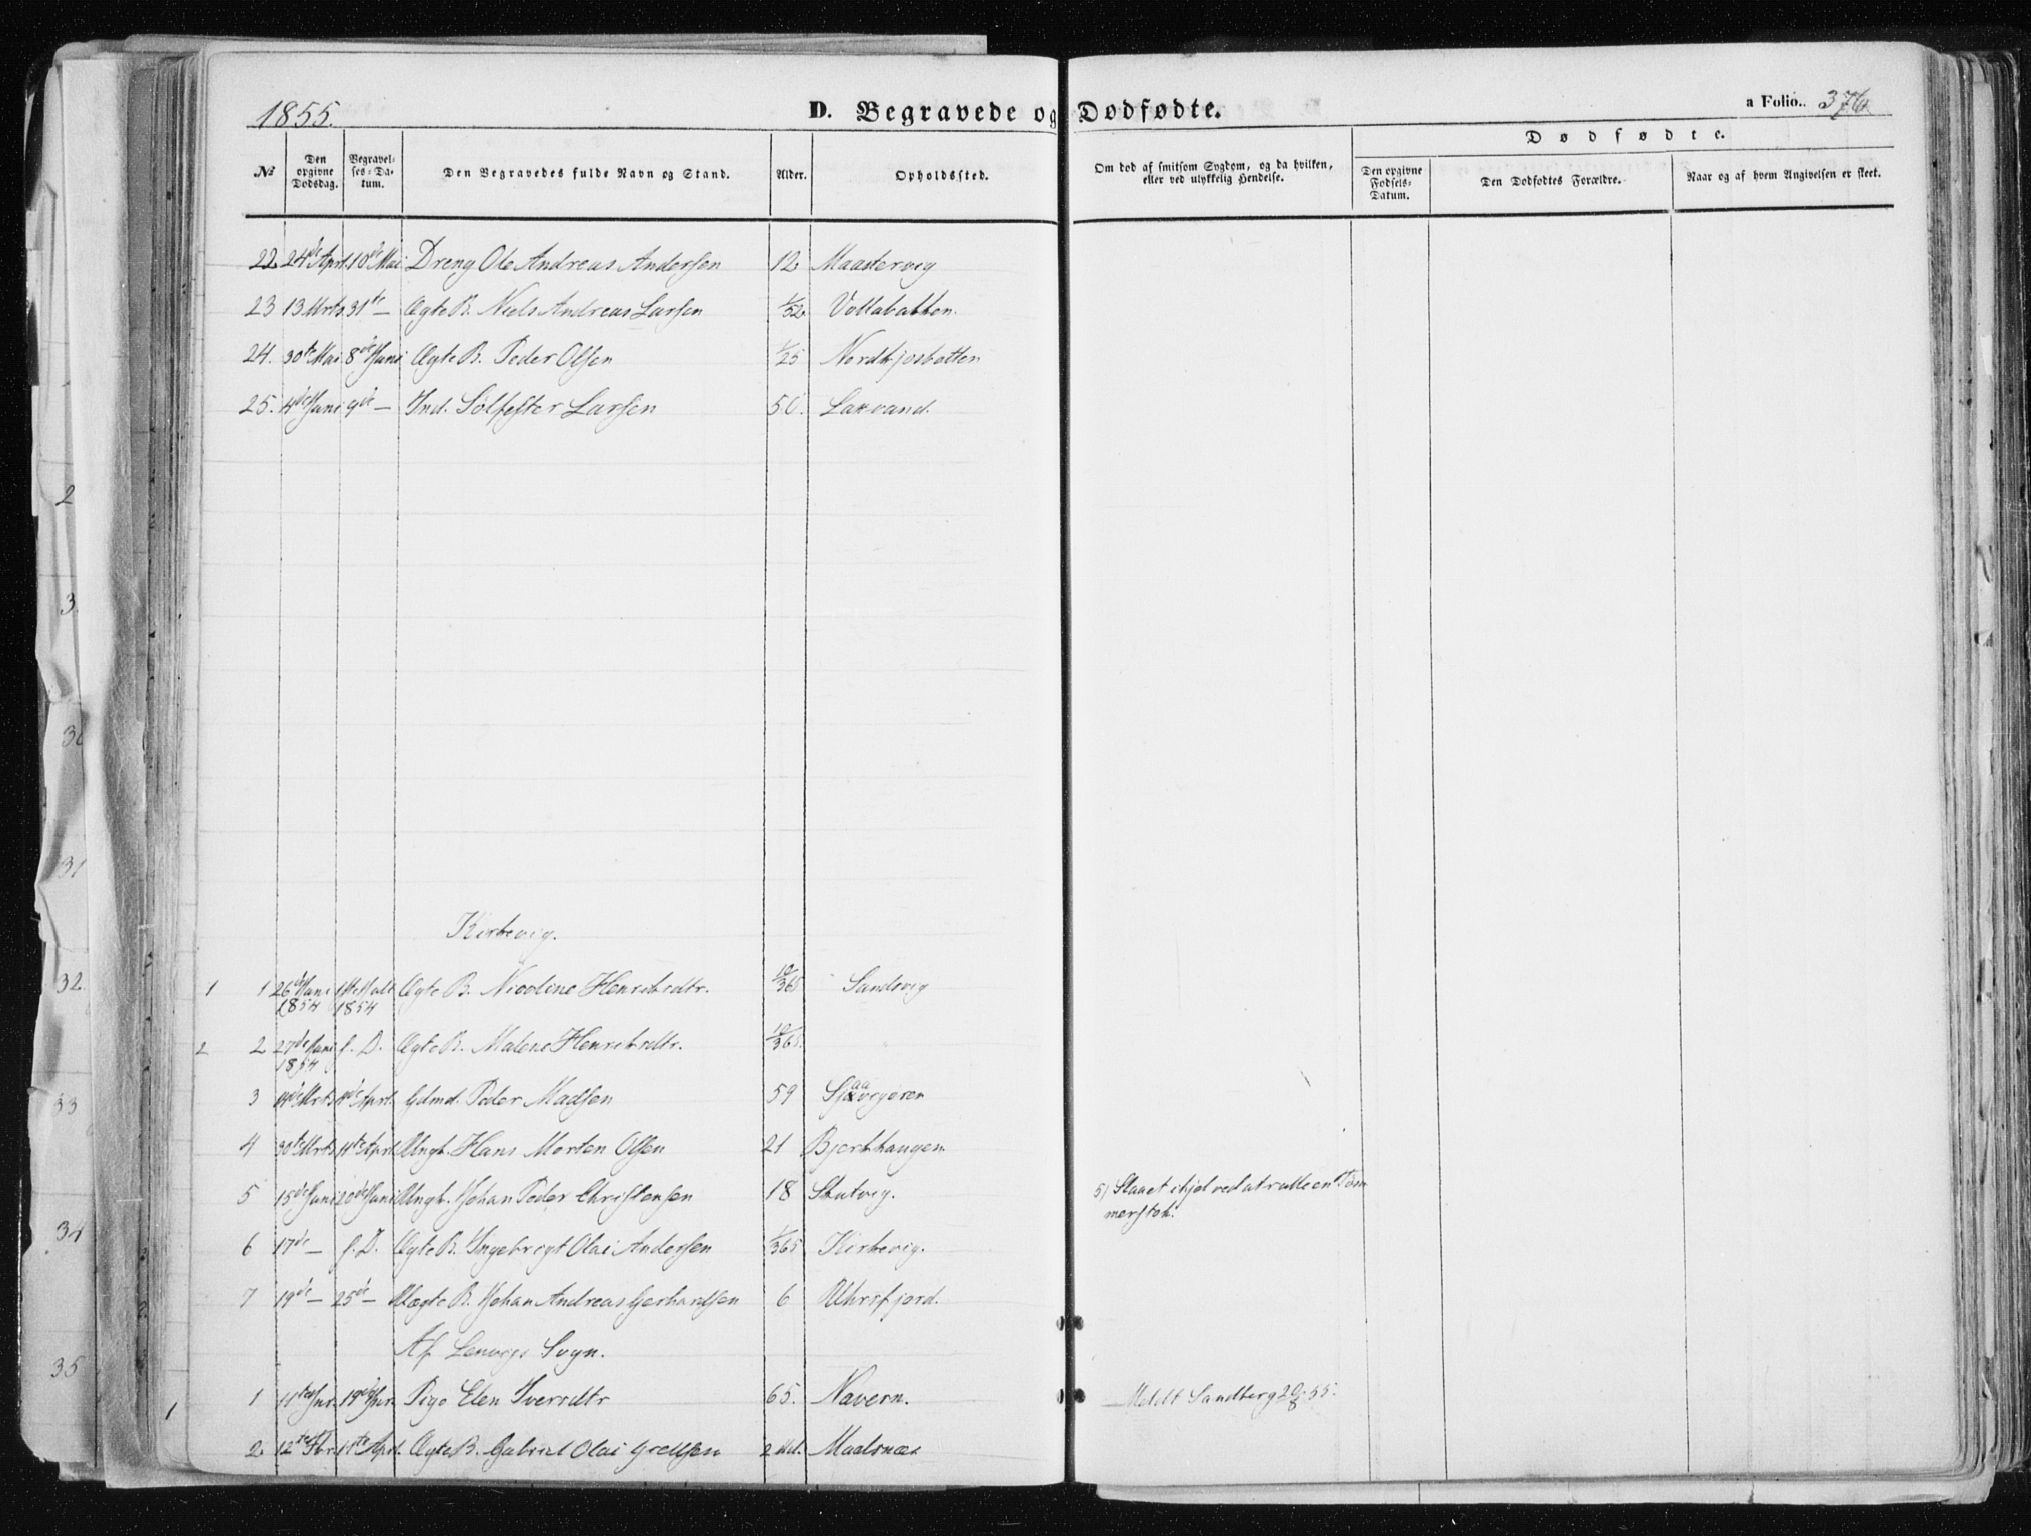 1855.
D. Begravede og Dødfødte.
a Folio.. 376.
Dødfødte.
№
Den opgivne Dødsdag.
Begravelses-Datum.
Den Begravedes fulde Navn og Stand.
Alder.
Opholdssted.
Om død af smitsom Sygdom, og da hvilken, eller ved ulykkelig Hendelse.
Den opgivne Fødsels-Datum.
Den Dødfødtes Forældre.
Naar og af hvem Angivelsen er skeet.
22. 24de Aprl. 10de Mai Dreng Ole Andreas Andersen 12
23 13 Mrts 31te — Ægte B. Niels Andreas Larsen 1/52
24. 30te Mai 8de Juni Ægte B. Peder Olsen 1/25 Nordkjosbotten
25. 4de Juni 9de — Ind. Sølfester Larsen 50. Laxvand.
Kirkevig.
1 1 26de Juni 1854 1854 Ægte B. Nicoline Henrikedtr. 10/365 Sandsvig
2 2 27de Juni 1854 s. D. Ægte B. Malene Henrikedtr. 10/365.
3 Mrts Aprl. Gdmd. Peder Madsen 59
4 30te Mrts 11te Aprl. Ungk. Hans Morten Olsen 21 Bjerkhaugen
5 15de Juni 20de Juni Ungk. Johan Peder Christensen 18 Skutvig. 5) Slaaet ihjel ved at rulle en Tømmerstok.
6 17de — s. D. Ægte B. Ingebrigt Olai Andersen 1/365 Kirkevig.
7 19de — 25de — Uægte B. Johan Andreas Gerhardsen 6
Af Lenvigs Sogn.
1 1 11te Jnr. 19de Jnr. Pige Elen Iversdtr 65. Navern. — Meldt Sandberg 29/8 55.
2. 12te Fbr. 11te Aprl. Ægte B. Gabriel Olai 2 Maalsnæs
2
3
30
31
32
33
34
35